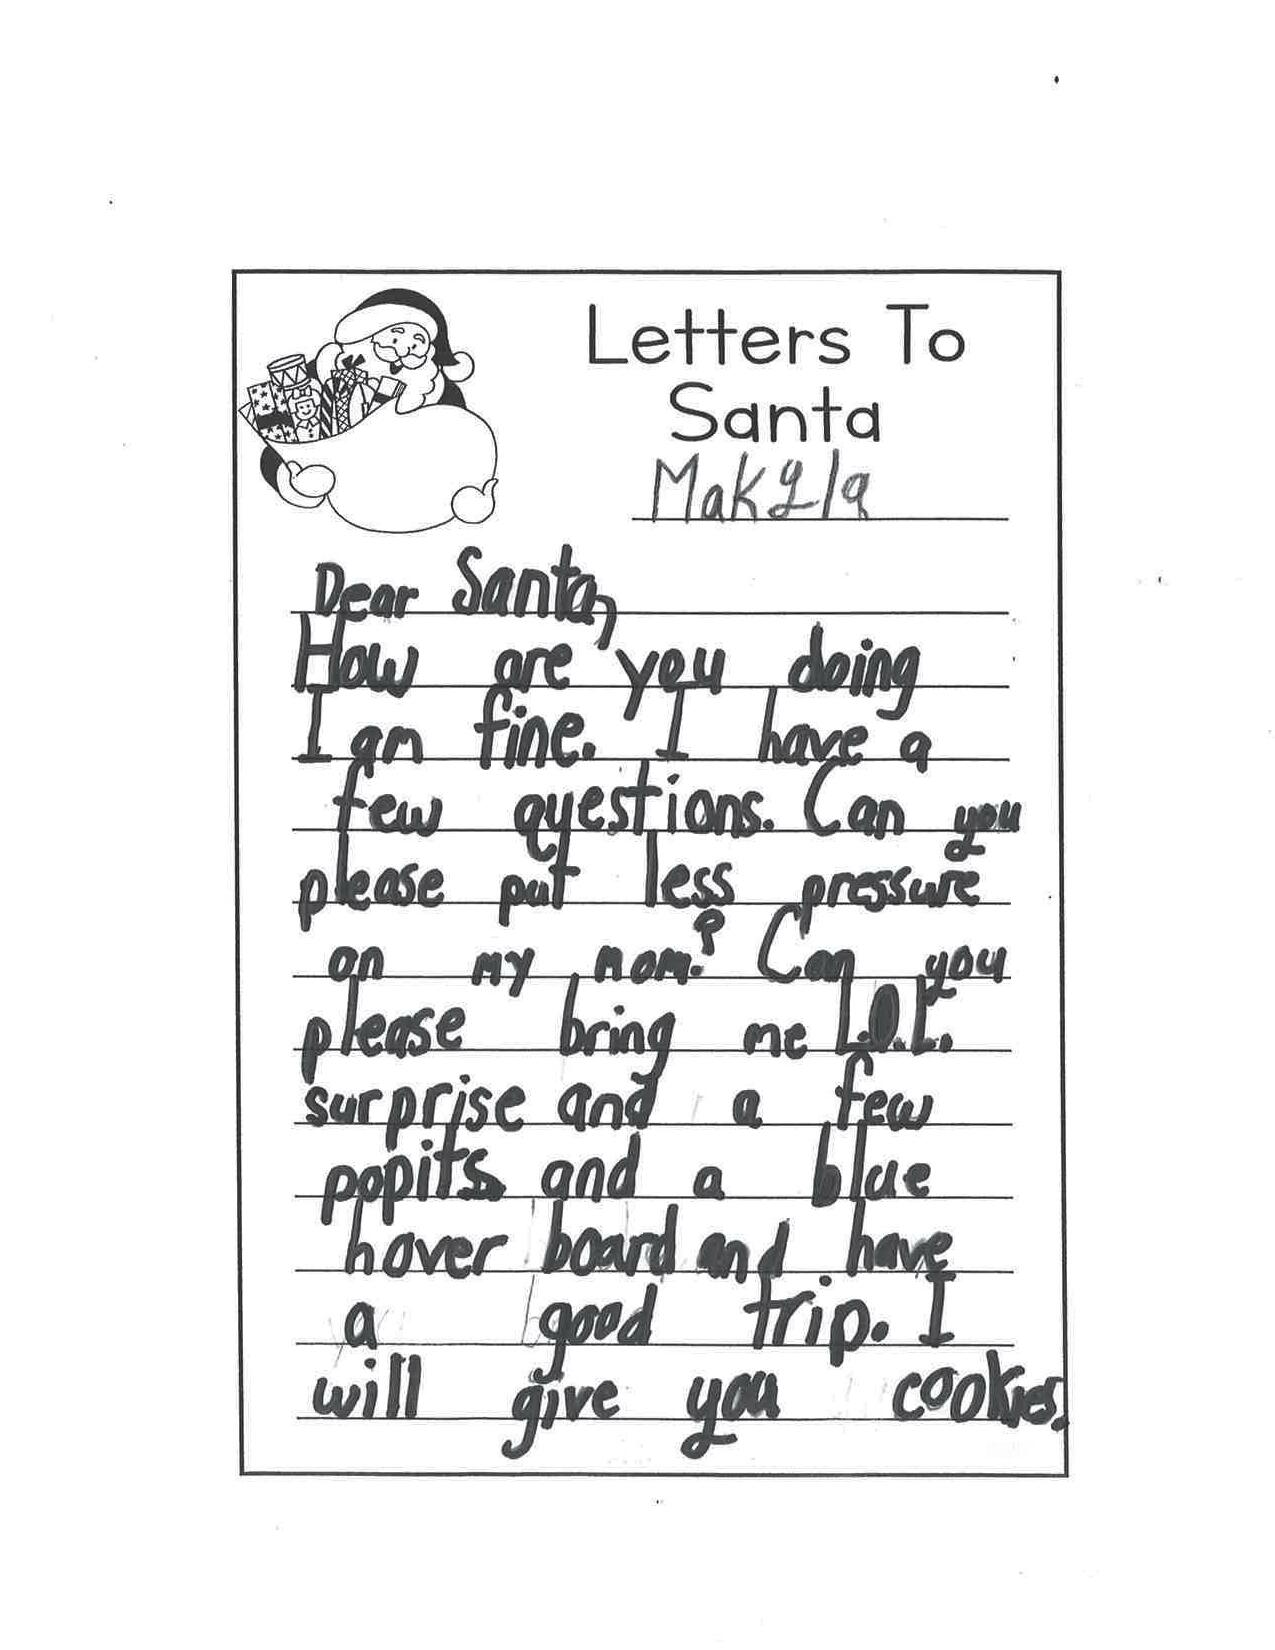 Letters To
Santa
Makyla
Dear Santa,
How are you doing
I am fine. I have a
few questions. Can you
please put less pressure
on my mom? Can you
please bring me L.O.L.
surprise and a few
popits and a blue
hover board and have
a good trip. I
will give you cookies.